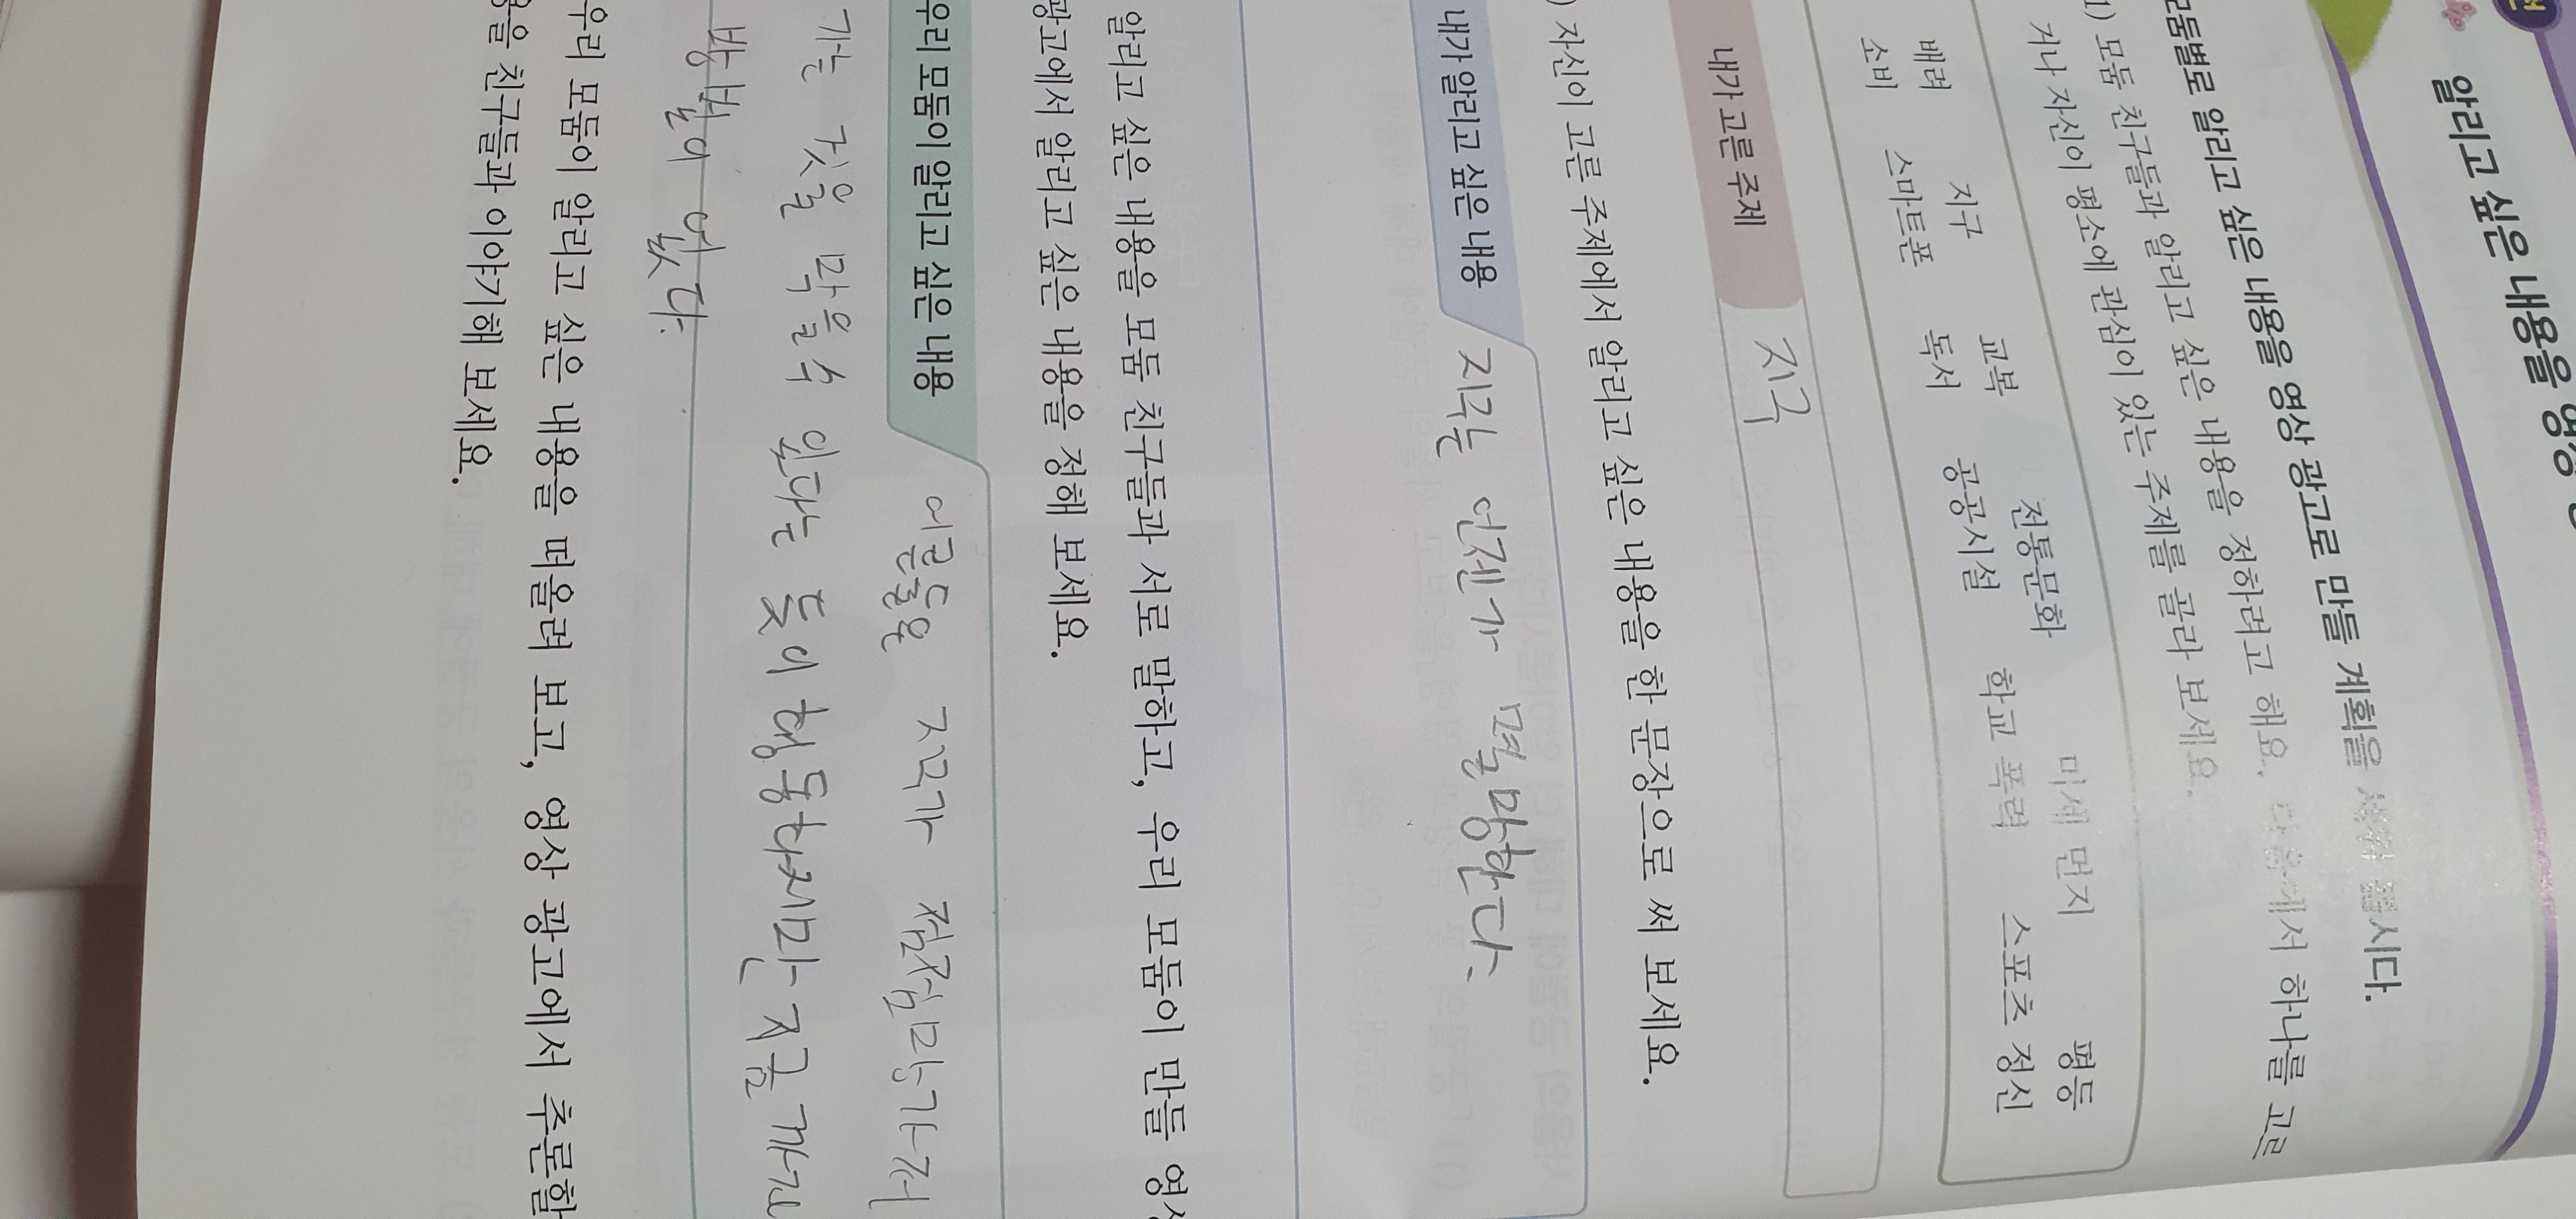 알리고 싶은 내용을 영상
모둠별로 알리고 싶은 내용을 영상 광고로 만들 계획을 세워 봅시다.
1) 모둠 친구들과 알리고 싶은 내용을 정하려고 해요. 다음에서 하나를 고르
거나 자신이 평소에 관심이 있는 주제를 골라 보세요.
배려 지구 교복 전통문화 미세 먼지 평등
소비 스마트폰 독서 공공시설 학교 폭력 스포츠 정신
내가 고른 주제 지구
) 자신이 고른 주제에서 알리고 싶은 내용을 한 문장으로 써 보세요.
내가 알리고 싶은 내용 지구는 언젠가 멸망한다.
알리고 싶은 내용을 모둠 친구들과 서로 말하고, 우리 모둠이 만들 영상
광고에서 알리고 싶은 내용을 정해 보세요.
우리 모둠이 알리고 싶은 내용 어른들은 지구가 점점 망가져
가는 것을 막을 수 있다는 듯이 행동하시만 지금 까지
방법이 없다.
우리 모둠이 알리고 싶은 내용을 떠올려 보고, 영상 광고에서 추론할
용을 친구들과 이야기해 보세요.